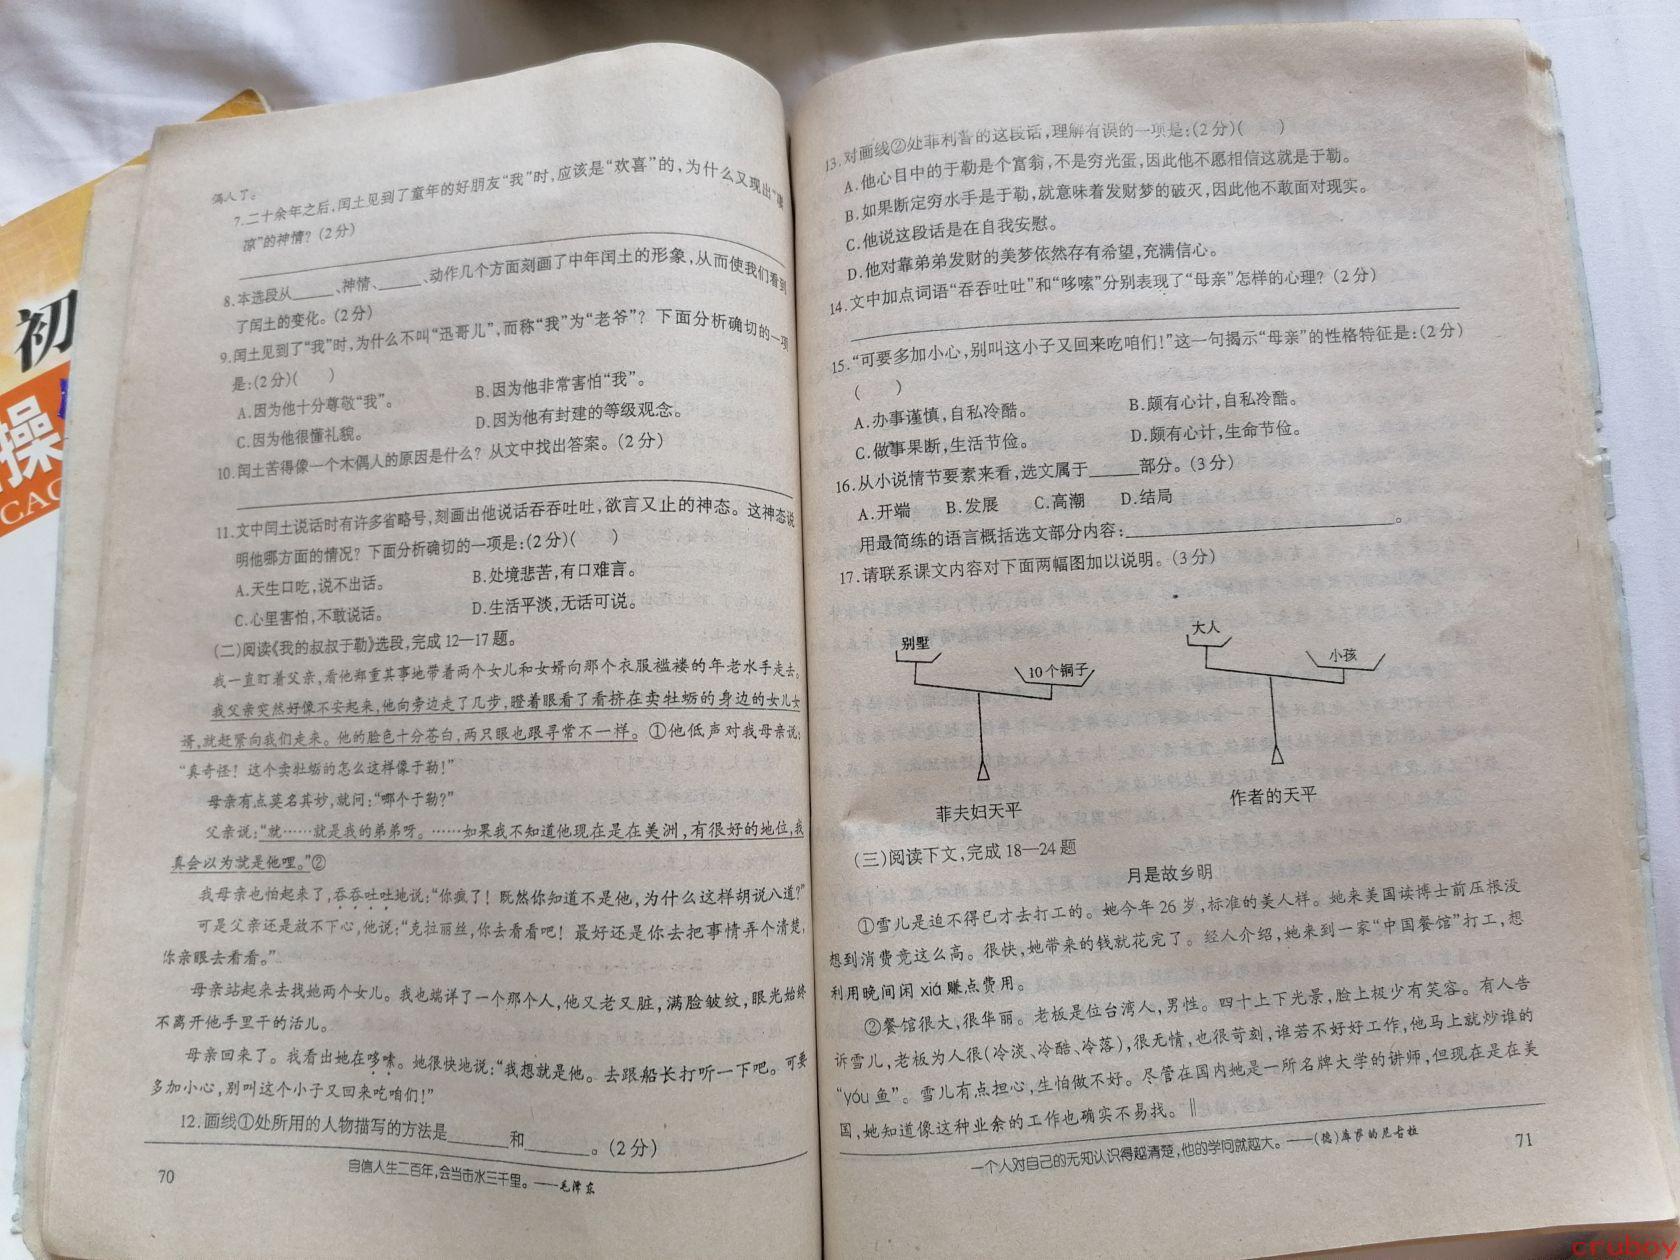 初
操
CAO
偶人了。
7.二十余年之后,闰土见到了童年的好朋友“我”时,应该是“欢喜”的,为什么又现出“凄
凉”的神情？(2分)
8.本选段从_____、神情、_____、动作几个方面刻画了中年闰土的形象,从而使我们看到
了闰土的变化。(2分)
9.闰土见到了“我”时,为什么不叫“迅哥儿”,而称“我”为“老爷”？下面分析确切的一项
是:(2分)(　　)
A.因为他十分尊敬“我”。　　B.因为他非常害怕“我”。
C.因为他很懂礼貌。　　D.因为他有封建的等级观念。
10.闰土苦得像一个木偶人的原因是什么？从文中找出答案。(2分)
11.文中闰土说话时有许多省略号,刻画出他说话吞吞吐吐,欲言又止的神态。这神态说
明他哪方面的情况？下面分析确切的一项是:(2分)(　　)
A.天生口吃,说不出话。　　B.处境悲苦,有口难言。
C.心里害怕,不敢说话。　　D.生活平淡,无话可说。
(二)阅读《我的叔叔于勒》选段,完成12—17题。
我一直盯着父亲,看他郑重其事地带着两个女儿和女婿向那个衣服褴褛的年老水手走去。
我父亲突然好像不安起来,他向旁边走了几步,瞪着眼看了看挤在卖牡蛎的身边的女儿女
婿,就赶紧向我们走来。他的脸色十分苍白,两只眼也跟寻常不一样。①他低声对我母亲说:
“真奇怪！这个卖牡蛎的怎么这样像于勒!”
母亲有点莫名其妙,就问:“哪个于勒?”
父亲说:“就……就是我的弟弟呀。……如果我不知道他现在是在美洲,有很好的地位,我
真会以为就是他哩。”②
我母亲也怕起来了,吞吞吐吐地说:“你疯了！既然你知道不是他,为什么这样胡说八道?”
可是父亲还是放不下心,他说:“克拉丽丝,你去看看吧！最好还是你去把事情弄个清楚,
你亲眼去看看。”
母亲站起来去找她两个女儿。我也端详了一个那个人,他又老又脏,满脸皱纹,眼光始终
不离开他手里干的活儿。
母亲回来了。我看出她在哆嗦。她很快地说:“我想就是他。去跟船长打听一下吧。可要
多加小心,别叫这个小子又回来吃咱们!”
12.画线①处所用的人物描写的方法是______和______。(2分)
自信人生二百年,会当击水三千里。——毛泽东
70
13.对画线②处菲利普的这段话,理解有误的一项是:(2分)(　　)
A.他心目中的于勒是个富翁,不是穷光蛋,因此他不愿相信这就是于勒。
B.如果断定穷水手是于勒,就意味着发财梦的破灭,因此他不敢面对现实。
C.他说这段话是在自我安慰。
D.他对靠弟弟发财的美梦依然存有希望,充满信心。
14.文中加点词语“吞吞吐吐”和“哆嗦”分别表现了“母亲”怎样的心理？(2分)
15.“可要多加小心,别叫这小子又回来吃咱们!”这一句揭示“母亲”的性格特征是:(2分)
(　　)
A.办事谨慎,自私冷酷。　　B.颇有心计,自私冷酷。
C.做事果断,生活节俭。　　D.颇有心计,生命节俭。
16.从小说情节要素来看,选文属于_____部分。(3分)
A.开端　B.发展　C.高潮　D.结局
用最简练的语言概括选文部分内容:______________________。
17.请联系课文内容对下面两幅图加以说明。(3分)
别墅　10个铜子　大人　小孩
菲夫妇天平　作者的天平
(三)阅读下文,完成18—24题
月是故乡明
①雪儿是迫不得已才去打工的。她今年26岁,标准的美人样。她来美国读博士前压根没
想到消费竟这么高。很快,她带来的钱就花完了。经人介绍,她来到一家“中国餐馆”打工,想
利用晚间闲xiá赚点费用。
②餐馆很大,很华丽。老板是位台湾人,男性。四十上下光景,脸上极少有笑容。有人告
诉雪儿,老板为人很(冷淡、冷酷、冷落),很无情,也很苛刻,谁若不好好工作,他马上就炒谁的
“yóu鱼”。雪儿有点担心,生怕做不好。尽管在国内她是一所名牌大学的讲师,但现在是在美
国,她知道像这种业余的工作也确实不易找。‖
一个人对自己的无知认识得越清楚,他的学问就越大。——(德)库萨的尼古拉
71
cruboy